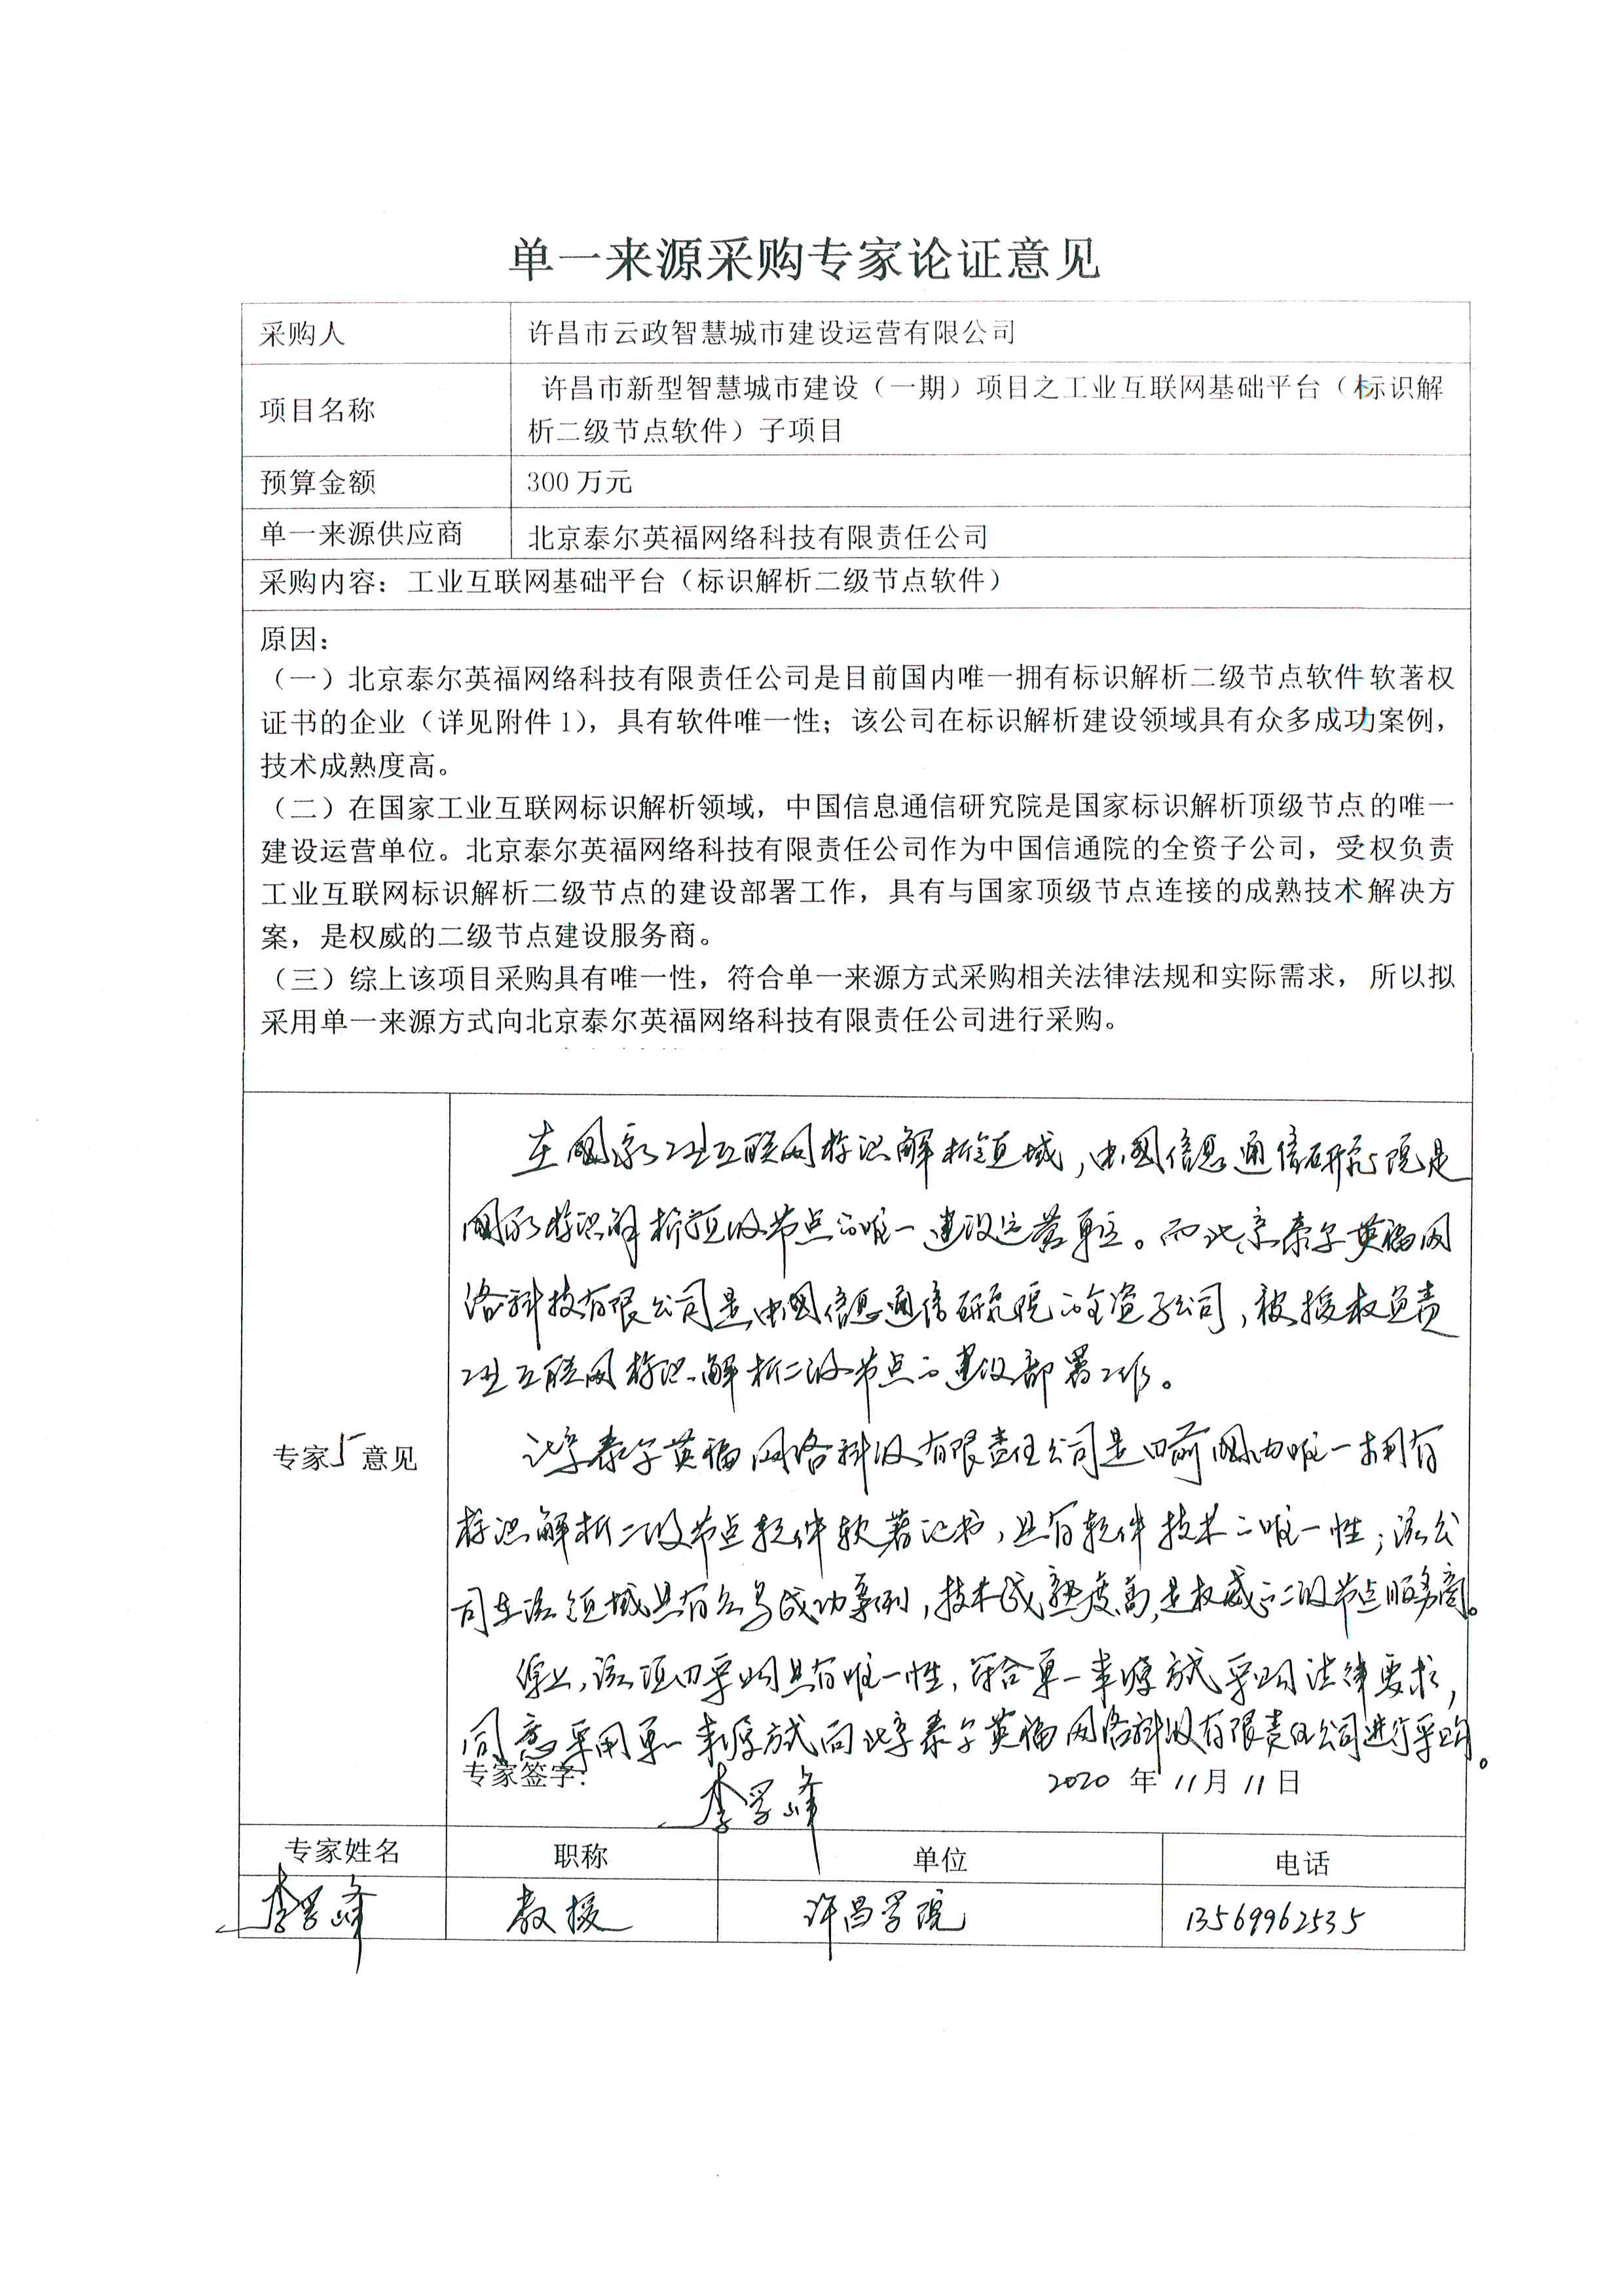 单一来源采购专家论证意见
采购人 许昌市云政智慧城市建设运营有限公司
项目名称 许昌市新型智慧城市建设（一期）项目之工业互联网基础平台（标识解
析二级节点软件）子项目
预算金额 300万元
单一来源供应商 北京泰尔英福网络科技有限责任公司
采购内容：工业互联网基础平台（标识解析二级节点软件）
原因：
（一）北京泰尔英福网络科技有限责任公司是目前国内唯一拥有标识解析二级节点软件软著权
证书的企业（详见附件1），具有软件唯一性；该公司在标识解析建设领域具有众多成功案例，
技术成熟度高。
（二）在国家工业互联网标识解析领域，中国信息通信研究院是国家标识解析顶级节点的唯一
建设运营单位。北京泰尔英福网络科技有限责任公司作为中国信通院的全资子公司，受权负责
工业互联网标识解析二级节点的建设部署工作，具有与国家顶级节点连接的成熟技术解决方
案，是权威的二级节点建设服务商。
（三）综上该项目采购具有唯一性，符合单一来源方式采购相关法律法规和实际需求，所以拟
采用单一来源方式向北京泰尔英福网络科技有限责任公司进行采购。
在国家工业互联网标识解析领域，中国信息通信研究院是
国家标识解析顶级节点的唯一建设运营单位。而北京泰尔英福网
络科技有限公司是中国信息通信研究院的全资子公司，被授权负责
工业互联网标识解析二级节点的建设部署工作。
专家5意见
北京泰尔英福网络科技有限责任公司是目前国内唯一拥有
标识解析二级节点软件软著证书，具有软件技术的唯一性；该公
司在该领域具有众多成功案例，技术成熟度高，是权威的二级节点服务商。
综上，该项目采购具有唯一性，符合单一来源方式采购法律要求，
同意采用单一来源方式向北京泰尔英福网络科技有限责任公司进行采购。
专家签字： 李学峰 2020年11月11日
专家姓名 职称 单位 电话
李学峰 教授 许昌学院 13569962535